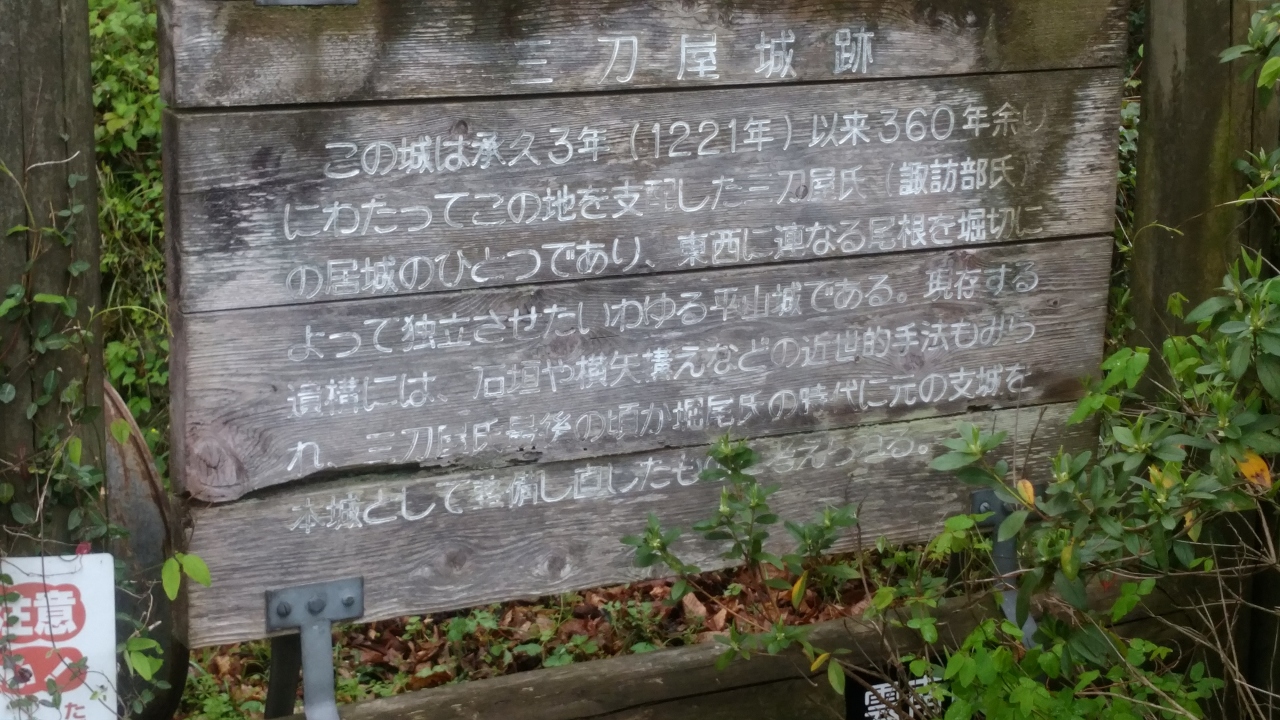 三刀屋城跡
この城は承久3年（1221年）以来360年余り
にわたってこの地を支配した三刀屋氏（諏訪部氏）
の居城のひとつであり、東西に連なる尾根を堀切に
よって独立させたいわゆる平山城である。現存する
遺構には、石垣や横矢構えなどの近世的手法もみら
れ、三刀屋氏最後の頃か堀尾氏の時代に元の支城を
本城として整備し直したもの
注意
た